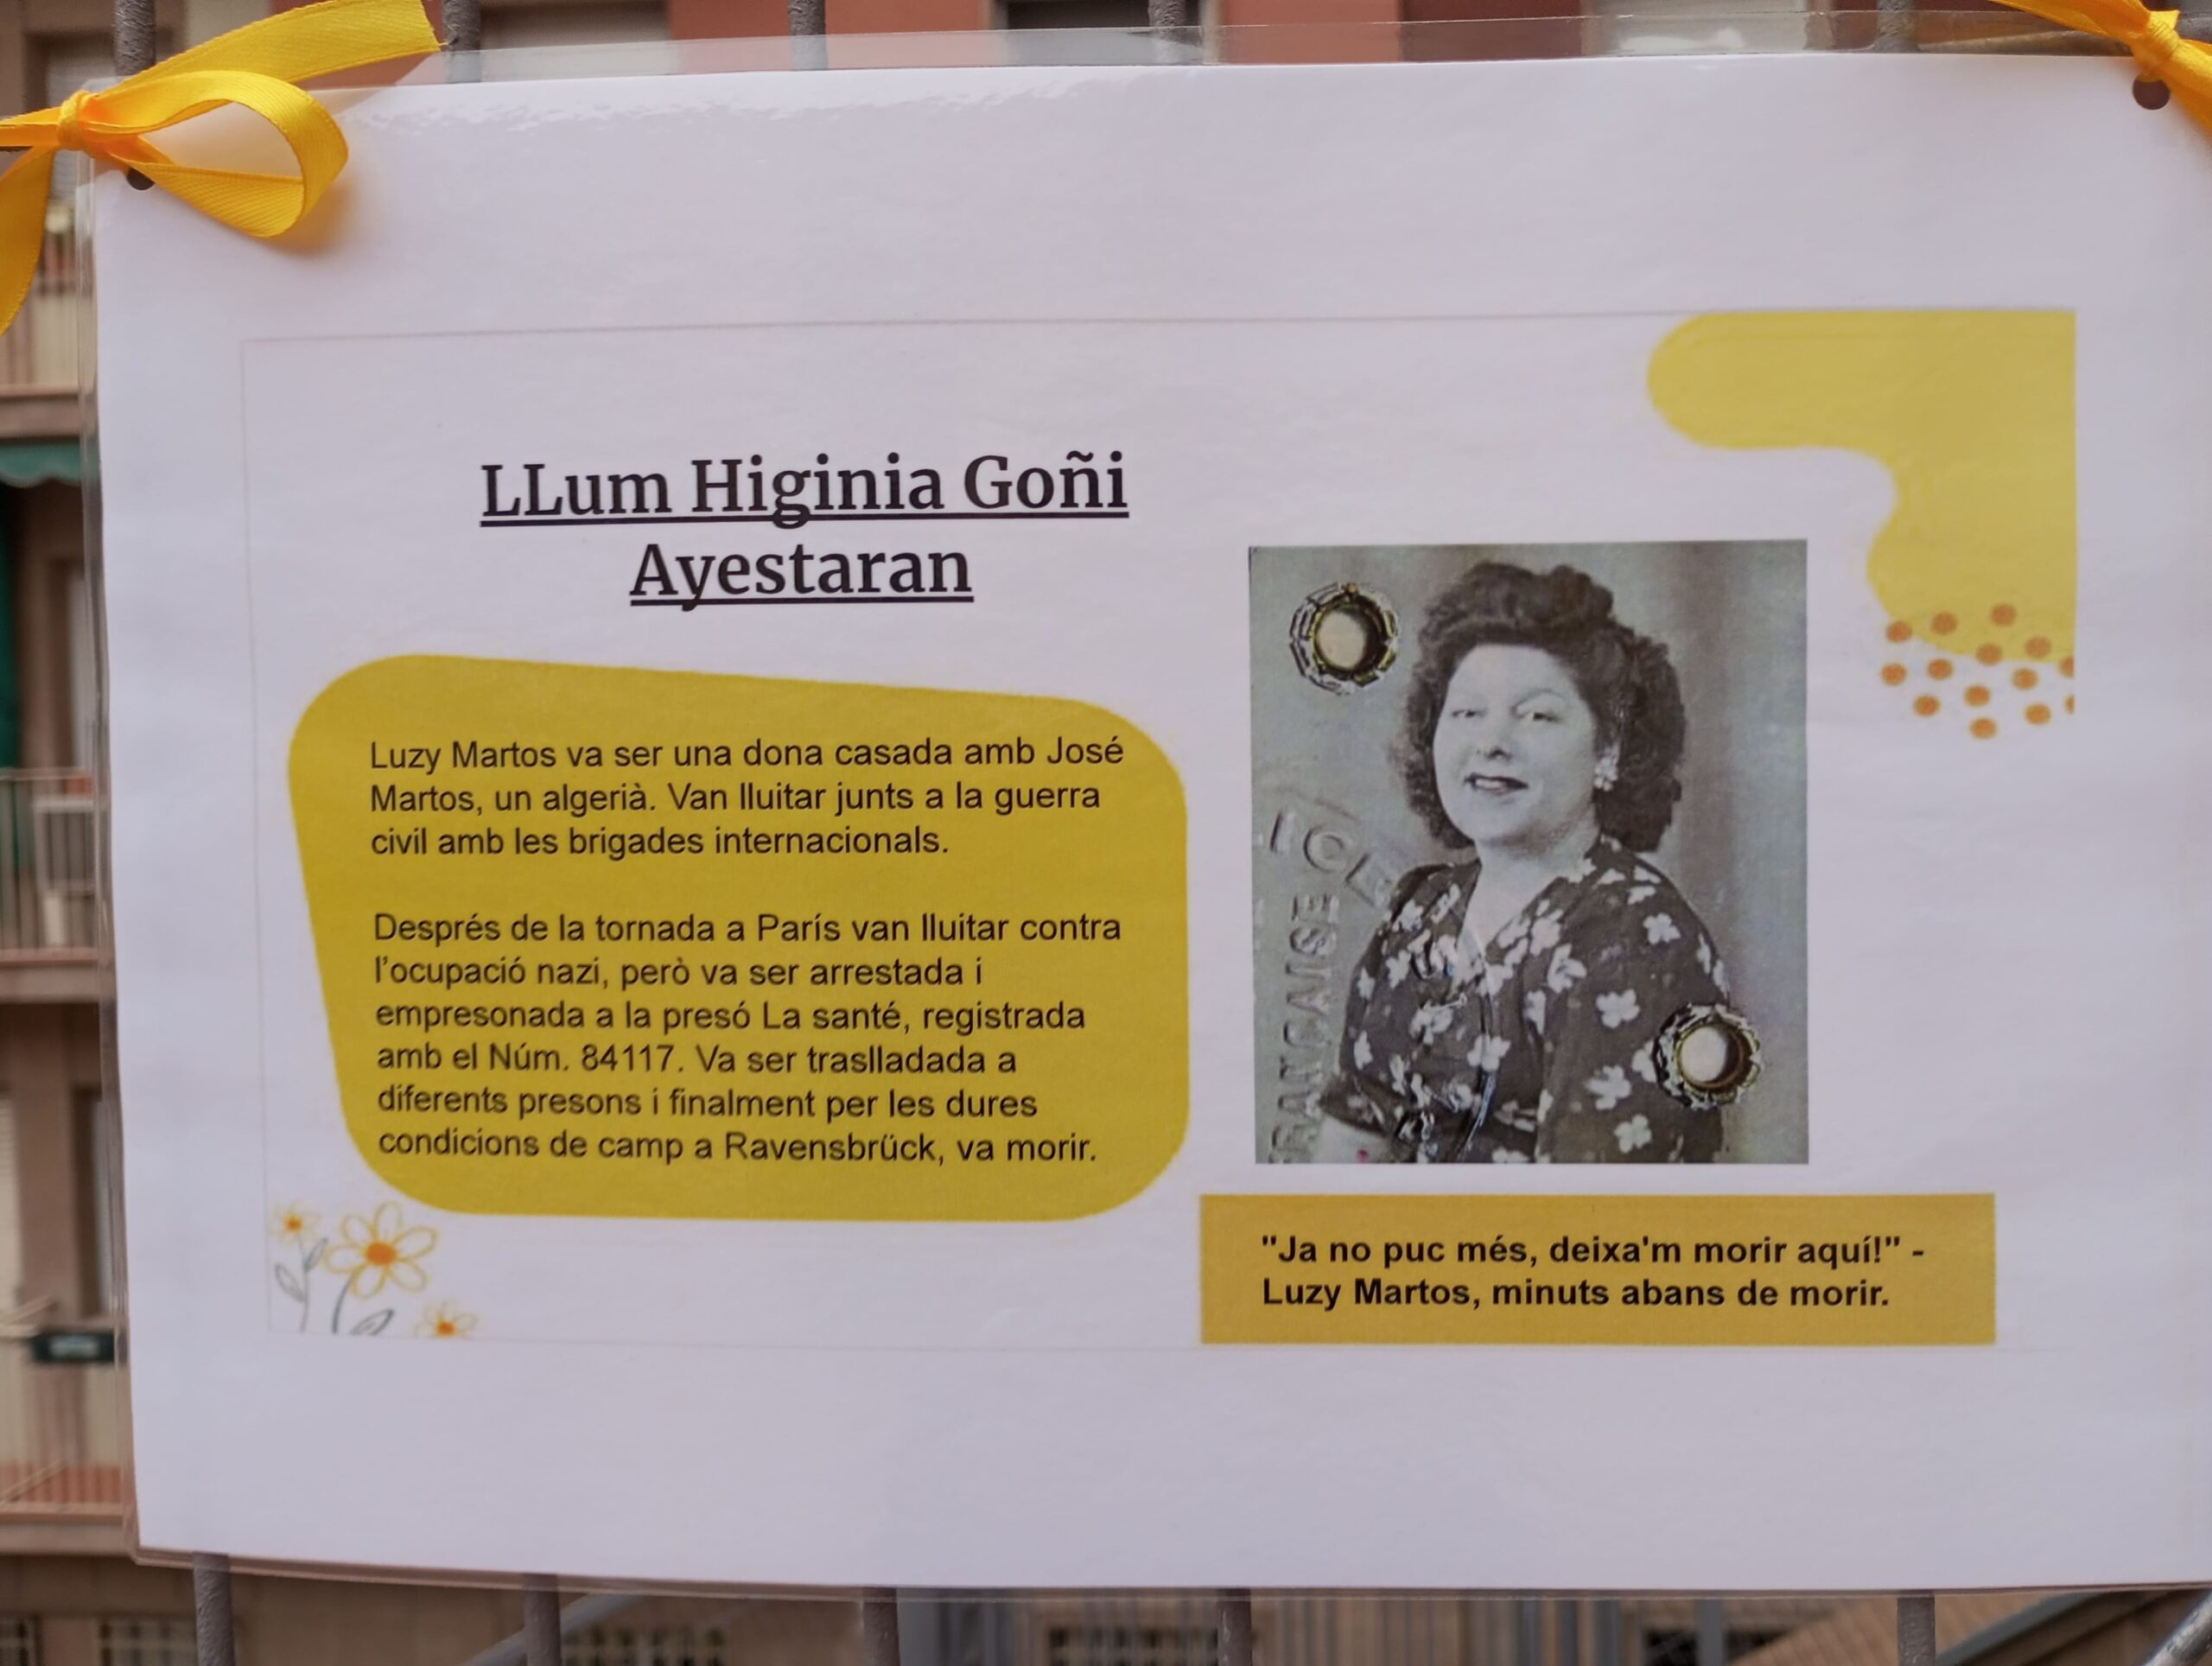 LLum Higinia Goñi
Ayestaran
Luzy Martos va ser una dona casada amb José
Martos, un algerià. Van lluitar junts a la guerra
civil amb les brigades internacionals.
Després de la tornada a París van lluitar contra
l'ocupació nazi, però va ser arrestada i
empresonada a la presó La santé, registrada
amb el Núm. 84117. Va ser traslladada a
diferents presons i finalment per les dures
condicions de camp a Ravensbrück, va morir.
"Ja no puc més, deixa'm morir aquí!" -
Luzy Martos, minuts abans de morir.